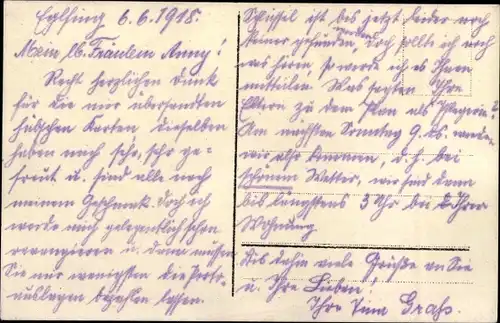 Eglfing 6.6.1918.
Mein lb. Fräulein Anny!
Recht herzlichen Dank
für die mir übersandten
hübschen Karten, dieselben
haben mich sehr, sehr ge-
freut u. sind alle nach
meinem Geschmack. Doch ich
werde mich gelegentlich schon
revangieren u. dann müssen
Sie mir wenigstens die Porto-
auslagen bezahlen lassen.
Schlüssel ist bis jetzt leider noch
keiner gefunden worden, doch sollte ich noch
was hören, so werde ich es Ihnen
mitteilen. Was sagten Ihre
Eltern zu dem Plan als Pflegerin?
Am nächsten Sonntag 9. ds. werden
wir also kommen, d. h. bei
schönem Wetter, wir sind dann
bis längstens 3 Uhr bei Ihrer
Wohnung.
Bis dahin viele Grüße an Sie
u. Ihre Lieben!
Ihre